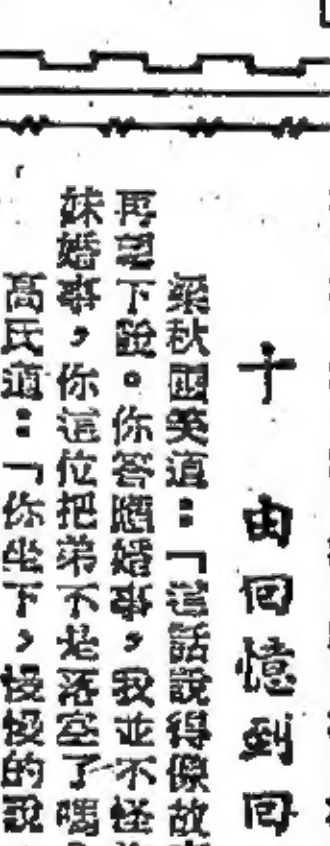 十 由回憶到回
梁秋圃笑道：「這話說得像故
再望下說。你答應婚事，我並不怪
妹婚事，你這位把弟不是落空了嗎
高氏道：「你坐下，慢慢的說